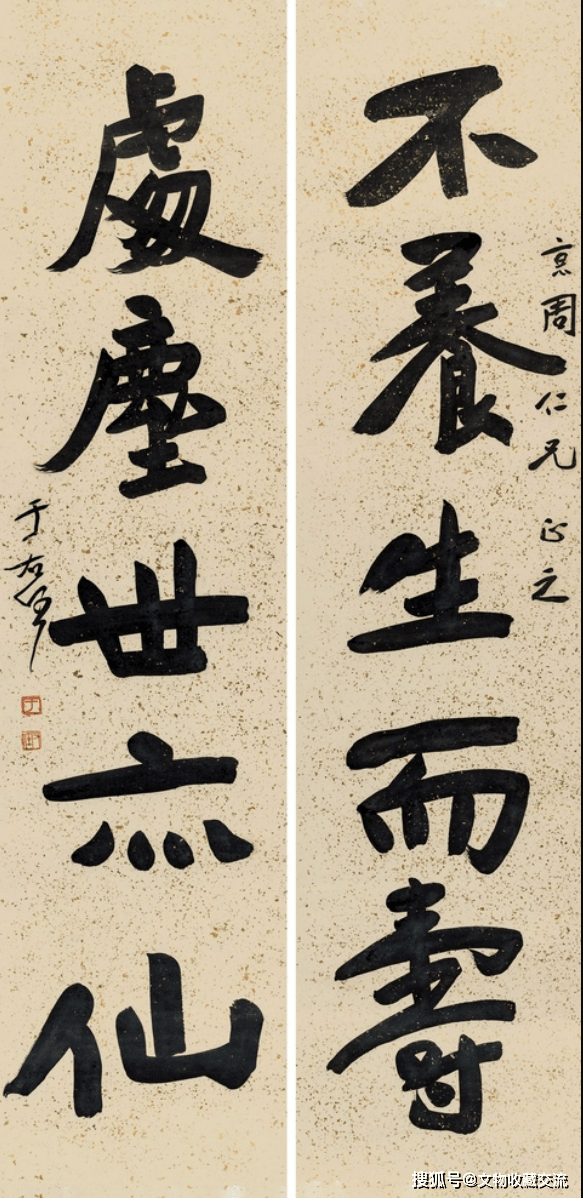 周仁兄 正之
不養生而壽
處塵世亦仙
于右任
搜狐号@文物收藏交流